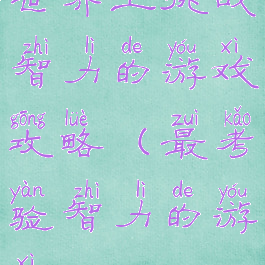 世界上挑战
zhì lì de yóu xì
智力的游戏
gōng lüè zuì kǎo
攻略（最考
yàn zhì lì de yóu
验智力的游
xì